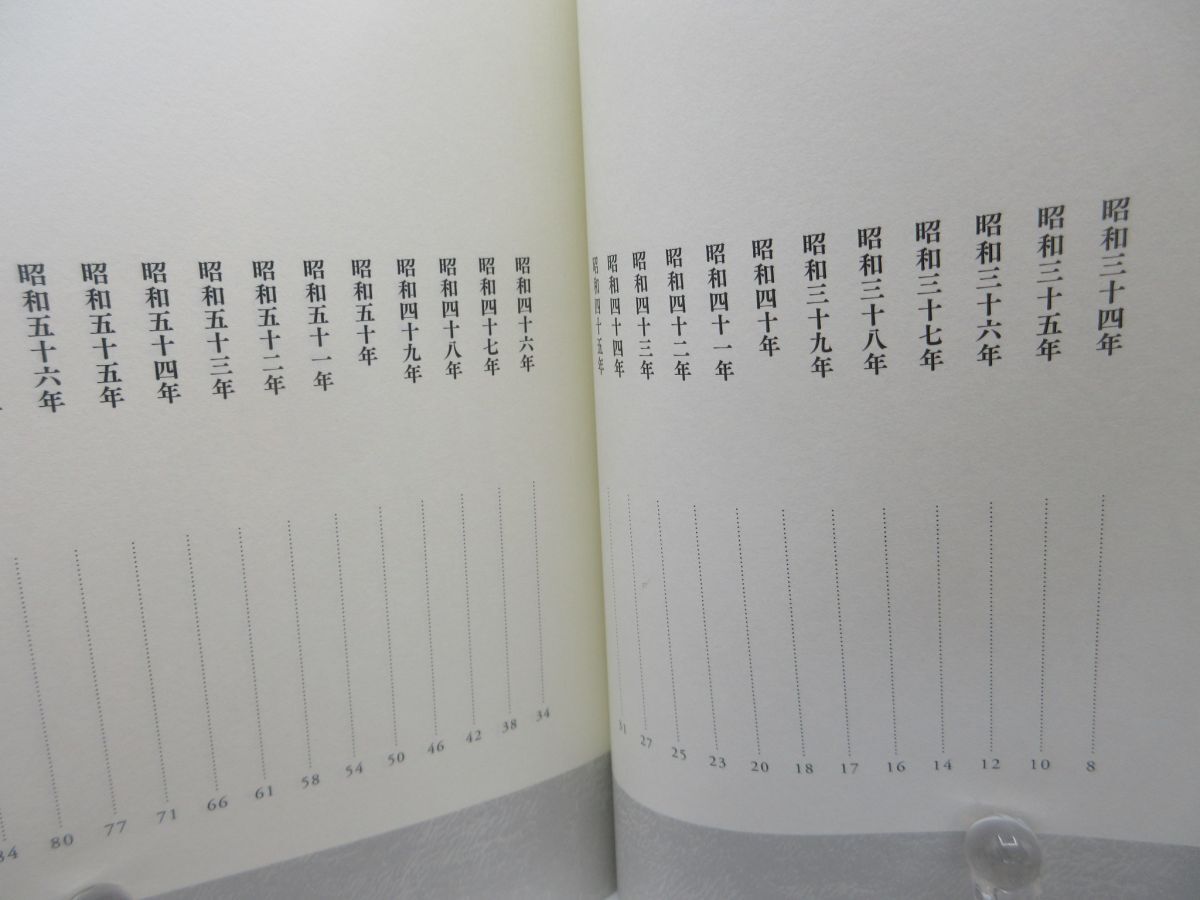 昭和三十四年 8
昭和三十五年 10
昭和三十六年 12
昭和三十七年 14
昭和三十八年 16
昭和三十九年 17
昭和四十年 18
昭和四十一年 20
昭和四十二年 23
昭和四十三年 25
昭和四十四年 27
昭和四十五年 31
昭和四十六年 34
昭和四十七年 38
昭和四十八年 42
昭和四十九年 46
昭和五十年 50
昭和五十一年 54
昭和五十二年 58
昭和五十三年 61
昭和五十四年 66
昭和五十五年 71
昭和五十六年 77
80
84